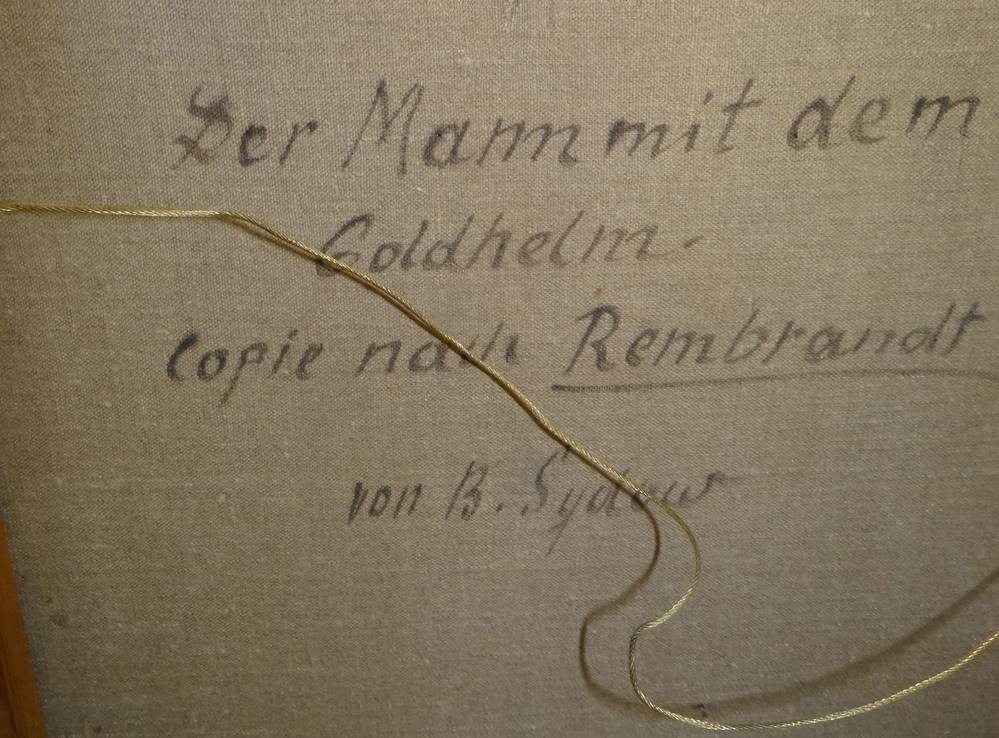 Der Mann mit dem
Goldhelm -
Copie nach Rembrandt
von B. Sydow